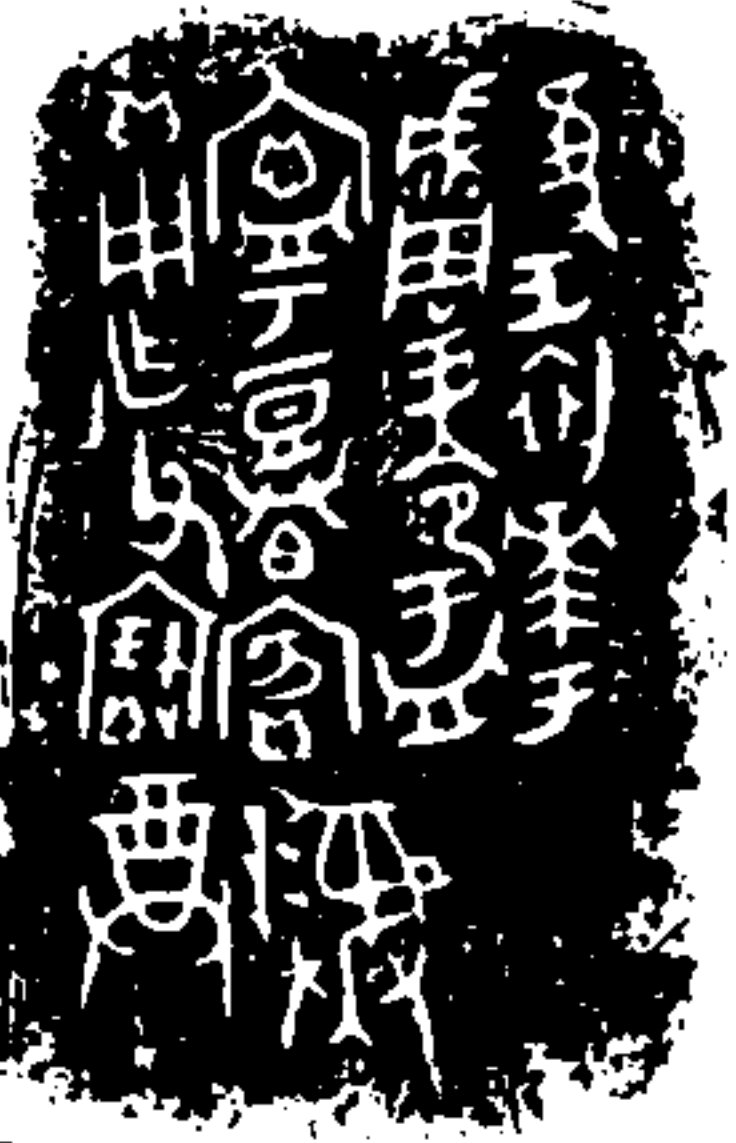 隹王初𠦪于
成周王令盂
寧登白賓
貝用乍父寶𢍜彝